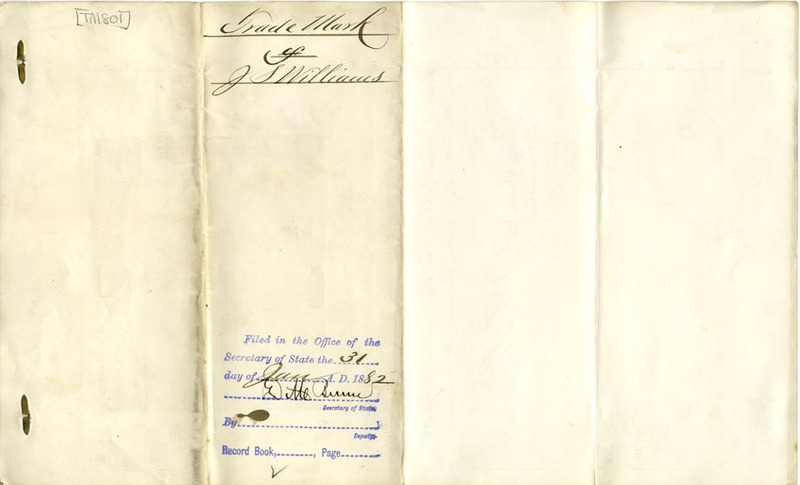 [TM801]
Trade Mark
of
J S Williams
Filed in the Office of the
Secretary of State the 31
day of Jany A. D. 1882
Secretary of State,
By
Deputy.
Record Book, , Page